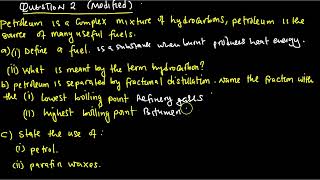 Question 2 (modified).
Petroleum is a complex mixture of hydrocarbons, petroleum is the
source of many useful fuels.
a)(i) Define a fuel. is a substance when burnt produces heat energy.
(ii) What is meant by the term hydrocarbon?
b) petroleum is separated by fractional distillation. Name the fraction with
the (i) lowest boiling point Refinery gases
(II) highest boiling point Bitumen
c) State the use of:
(i) petrol.
(ii) parafin waxes.